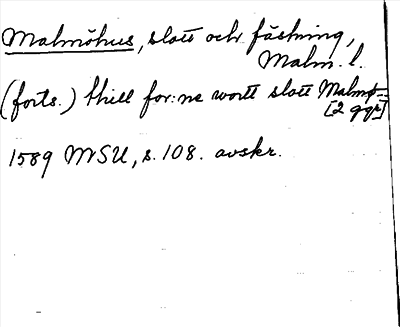 Malmöhus, slott och fästning,
Malm. l.
(forts.) thill for:ne wortt slott Malmø-
[2 ggr]
1589 MSU, s. 108. avskr.